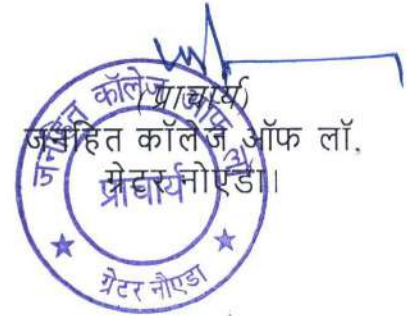 (प्राचार्य)
जनहित कॉलेज ऑफ लॉ,
ग्रेटर नोएडा।
जनहित कॉलेज ऑफ लॉ
प्राचार्य
ग्रेटर नौएडा